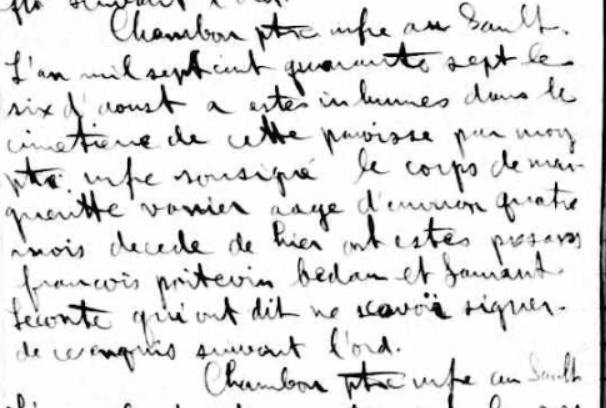 suivant l'ord.
Chambon ptre msre au Sault.
L'an mil sept cent quarante sept le
six d'aoust a estes inhumes dans le
cimetiere de cette paroisse par moy
ptre msre sousigné le corps de mar
gueritte vanier aage d'environ quatre
mois decede de hier ont estes presans
francois poitevin bedau et
Leconte qui ont dit ne scavoir signer.
de ce enquis suivant l'ord.
Chambon ptre msre au Sault